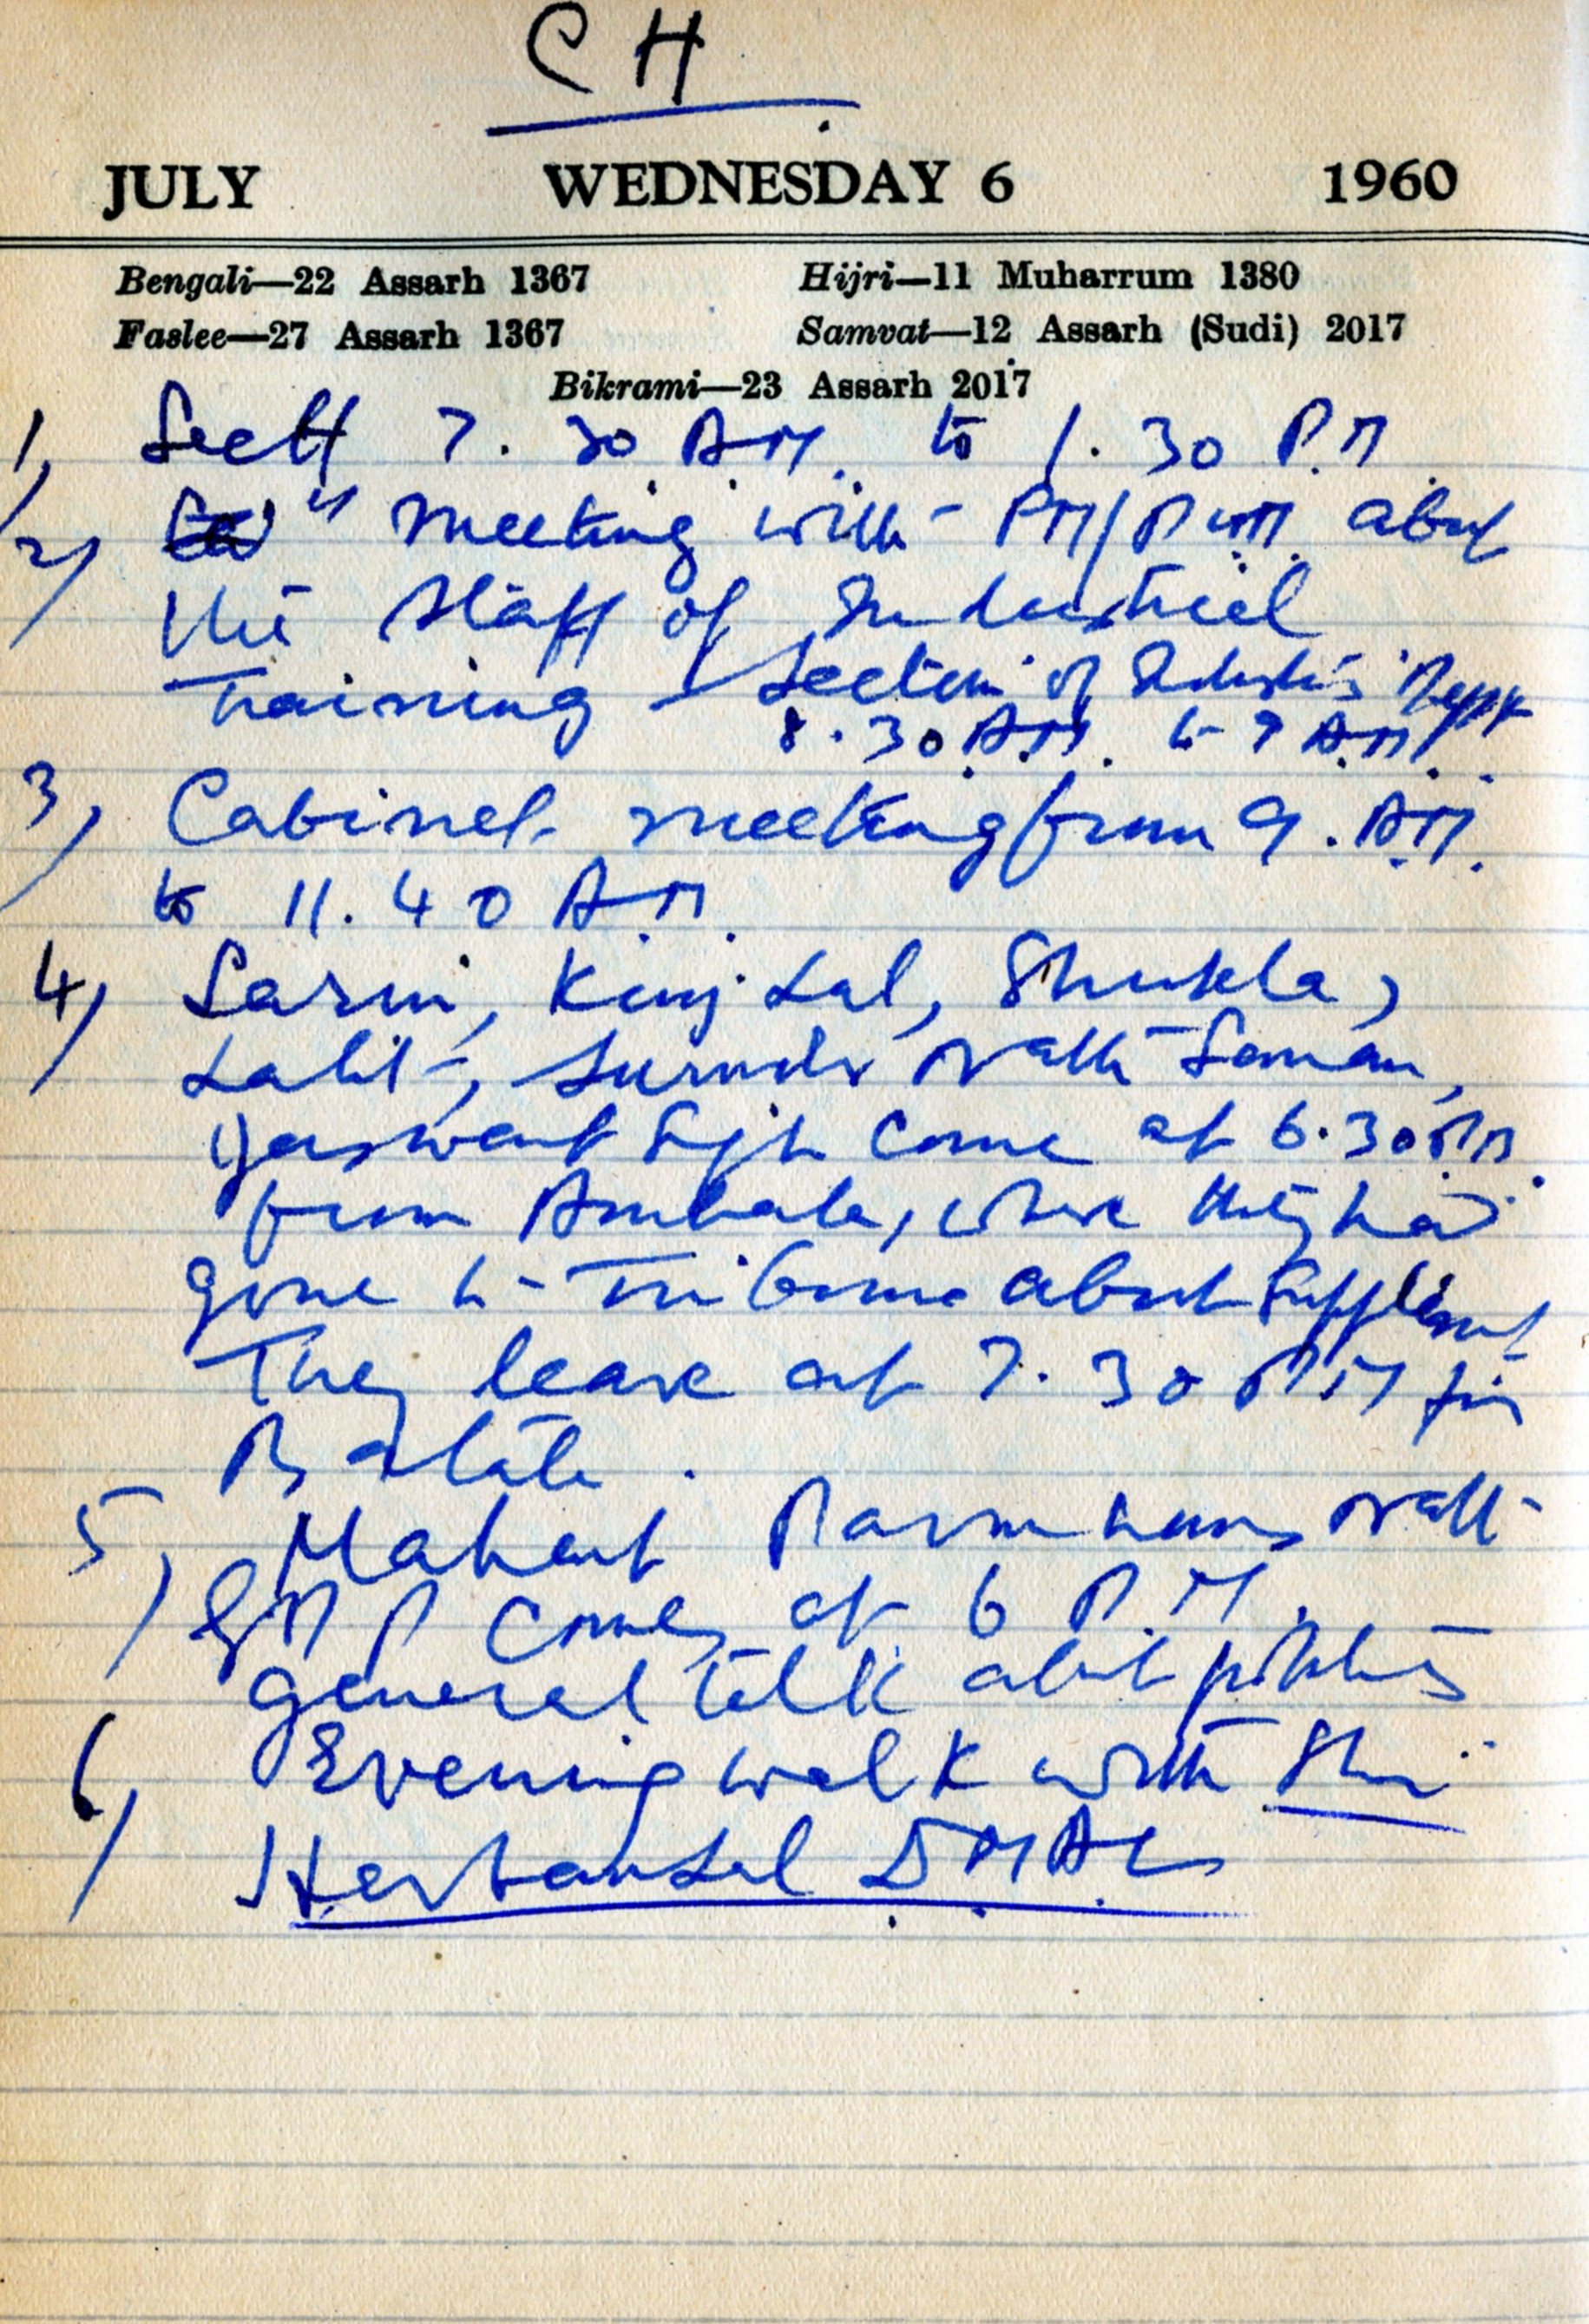 CH
JULY WEDNESDAY 6 1960
Bengali—22 Assarh 1367 Hijri—11 Muharrum 1380
Faslee—27 Assarh 1367 Samvat—12 Assarh (Sudi) 2017
Bikrami—23 Assarh 2017
1) Sectt 7.30 A.M. to 1.30 P.M.
2) " meeting with PM/ about
the staff of Industrial
Training Section of
8.30 A.M. to 9 A.M.
3) Cabinet meeting from 9. A.M.
to 11.40 A.M.
4) Sarin, Kunj Lal, Shukla,
Lalit, Nath
Jaswant Singh come at 6.30 PM
from Ambala, where they had
gone to Tribune about Supplement
They leave at 7.30 PM for
Patiala.
5) Mahant Parmhans Nath
comes at 6 P.M.
general talk about politics
6) Evening walk with Shri
Harbans Lal